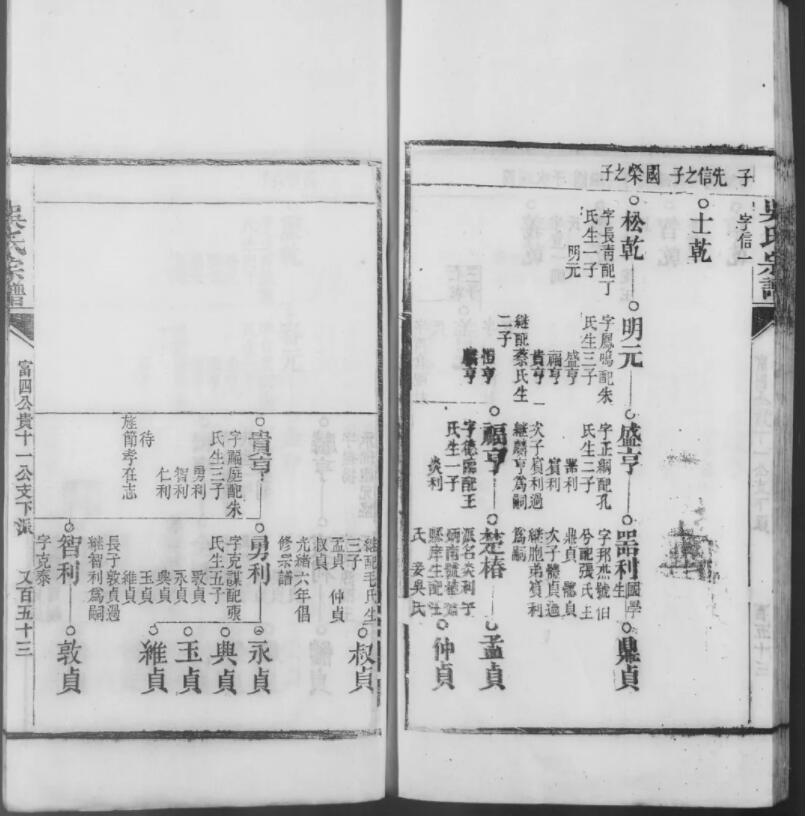 吳氏宗譜
子 先信之子 國榮之子
字信一
士乾
松乾
字長靑配丁
氏生一子
明元
明元
字鳳鳴配朱
氏生三子
盛亨
福亨
貴亨
繼配蔡氏生
二子
恒亨
麟亨
盛亨
字正綱配孔
氏生二子
器利
賓利
次子賓利過
繼麟亨爲嗣
福亨
字德臨配王
氏生一子
炎利
器利
國學生
字邦杰號伯
兮配張氏生
鼎貞 體貞
次子體貞過
繼胞弟賓利
爲嗣
楚椿
派名炎利字
縣庠生配江
氏 妾吳氏
鼎貞
孟貞
仲貞
繼配毛氏生
三子
孟貞 仲貞
叔貞
光緒六年倡
修宗譜
叔貞
貴亨
字福庭配朱
氏生三子
勇利
智利
仁利
待
旌節孝在志
勇利
字克謀配張
氏生五子
敦貞
永貞
典貞
玉貞
維貞
長子敦貞過
繼智利爲嗣
永貞
典貞
玉貞
維貞
智利
字克泰
敦貞
吳氏宗譜
富四公貴十一公支下派
又百五十三